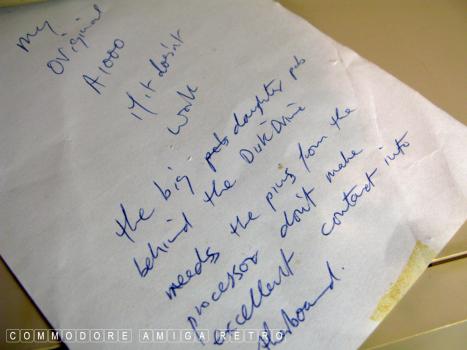 my
original
A1000
if it doesn't
work
the big pcb daughter pcb
behind the Disk Drive
needs the pins from the
processor don't make
excellent contact into
the board.
COMMODORE AMIGA RETRO